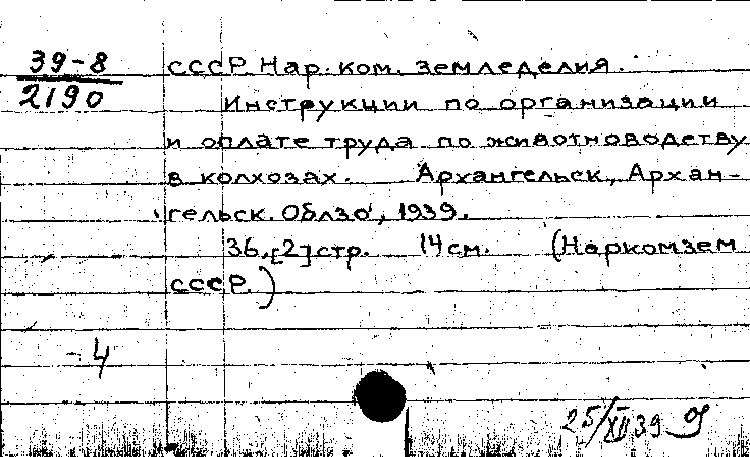 39-8
2190
СССР. Нар. ком. земледелия.
Инструкции по организации
и оплате труда по животноводству
в колхозах. Архангельск, Архан-
гельск. Облзо, 1939.
36,[2]стр. 14см. (Наркомзем
СССР.)
-4
25/XII 39